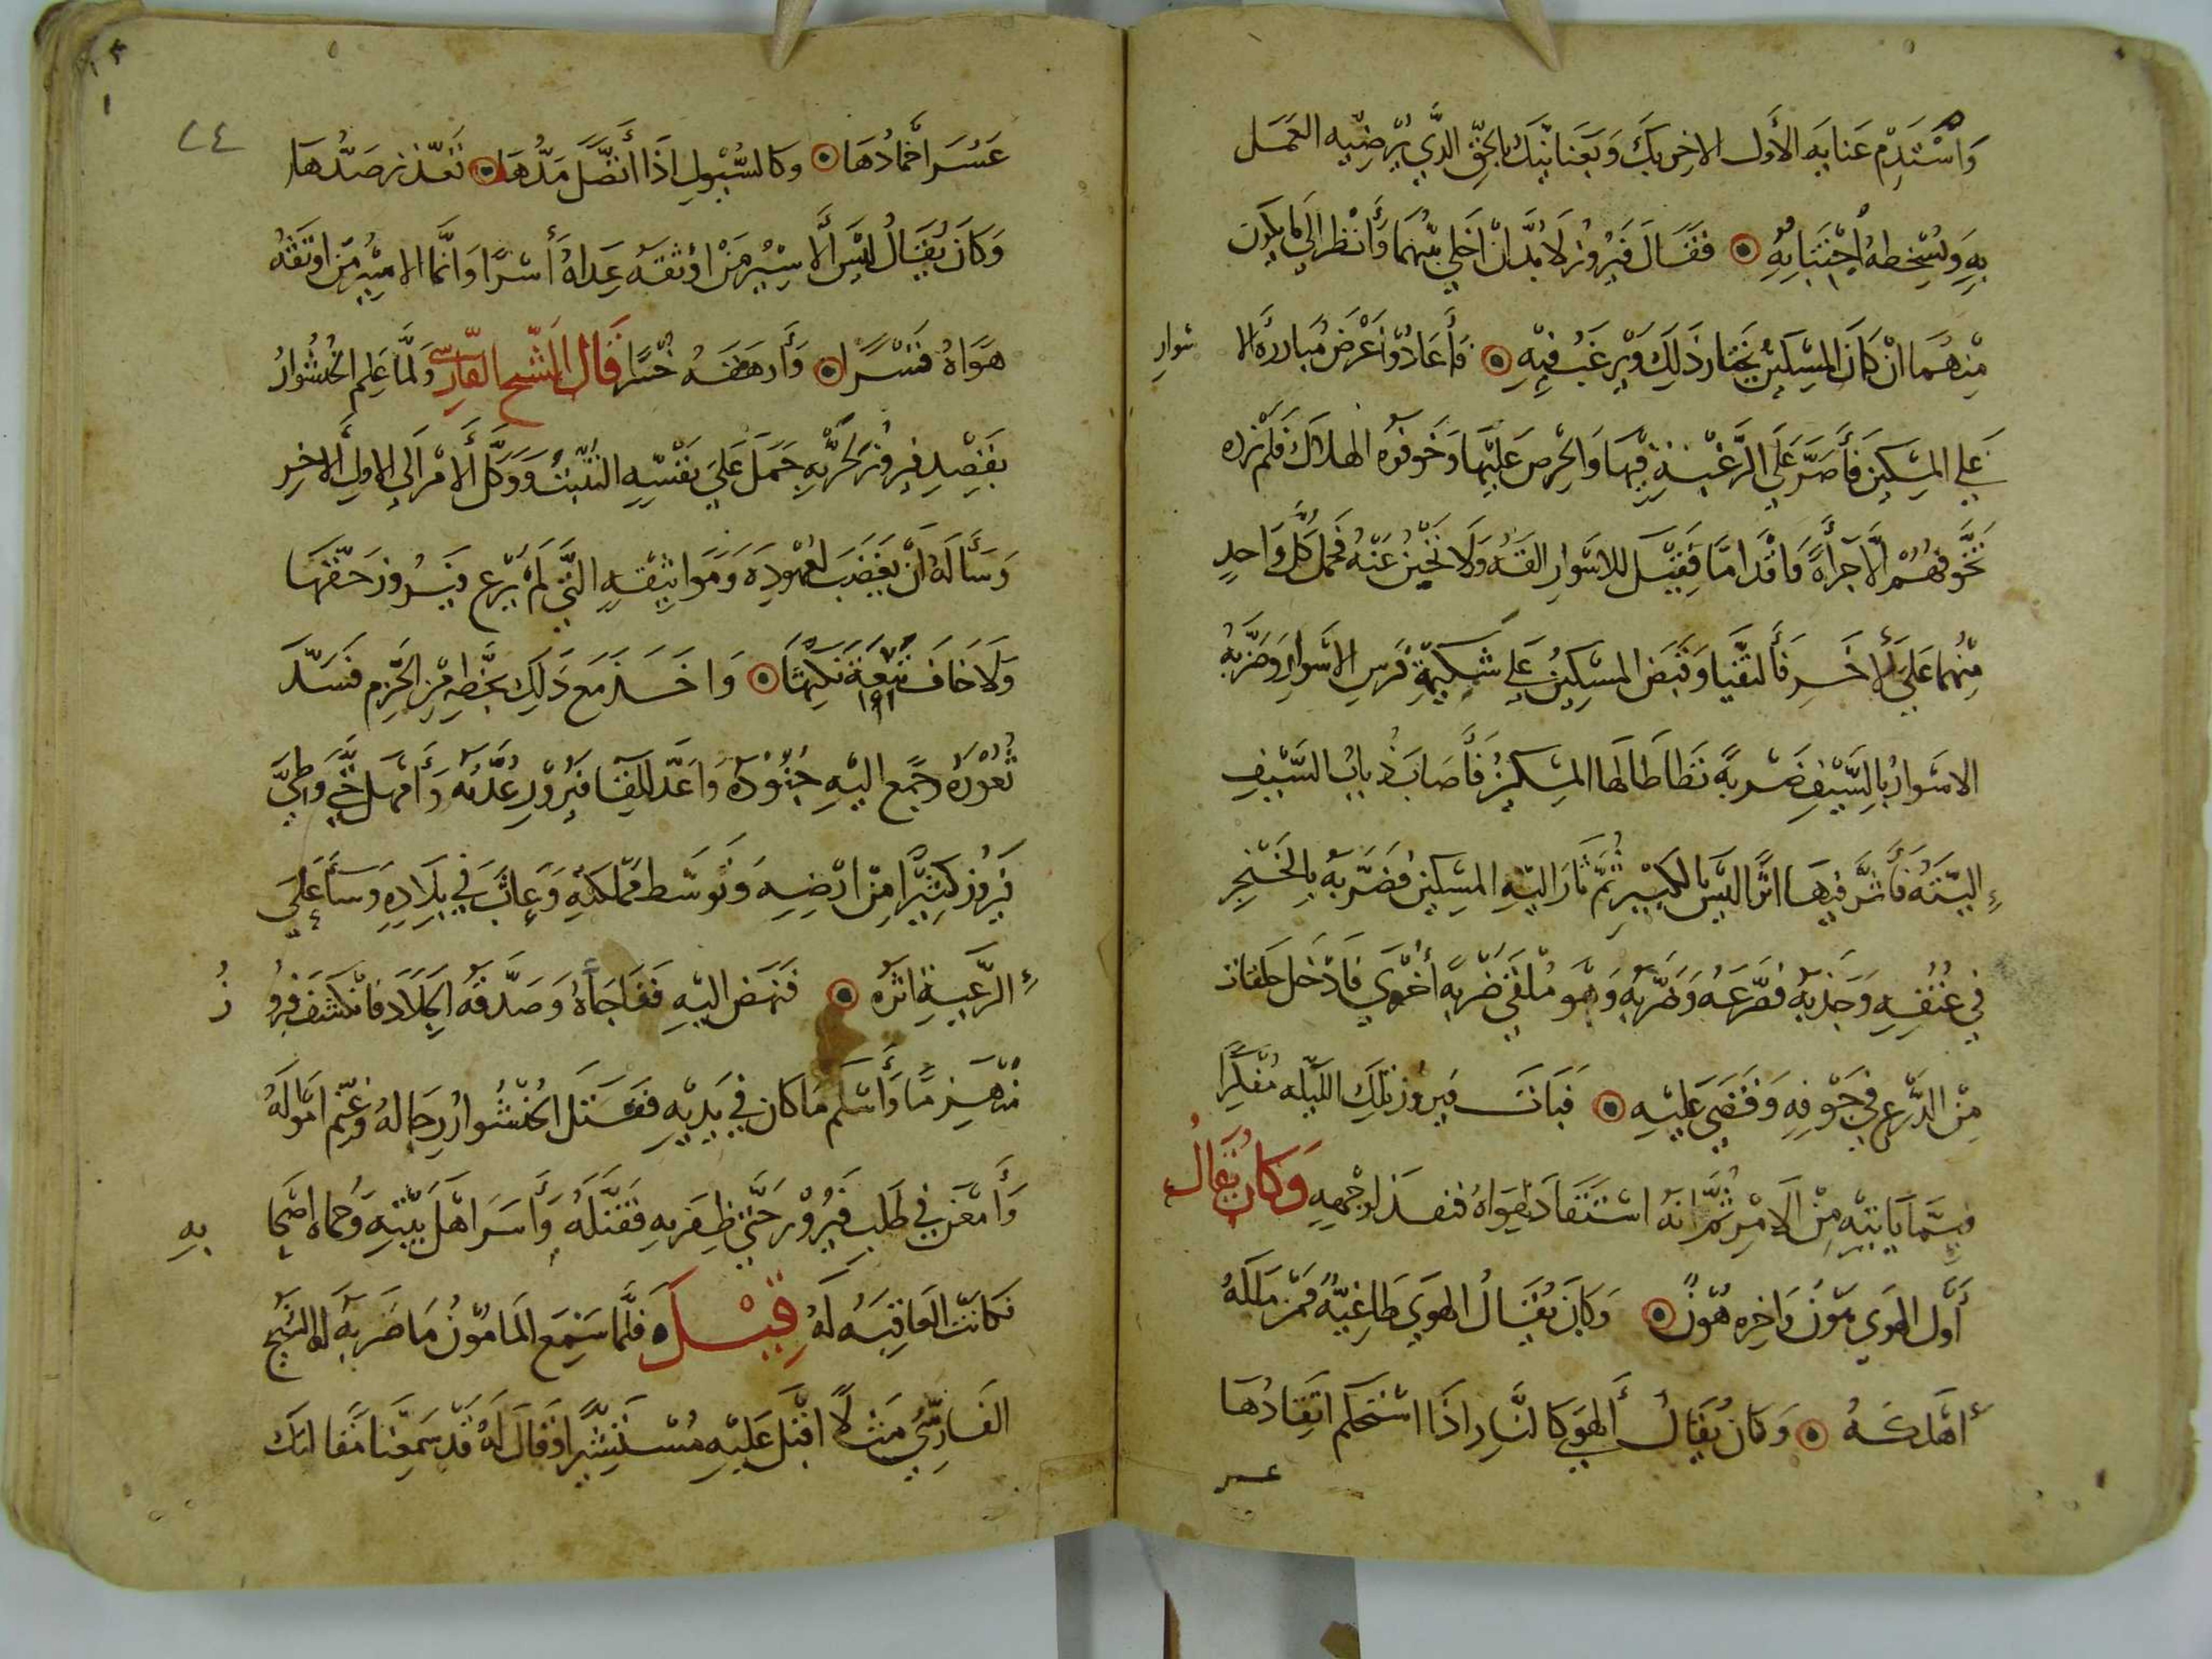 وَاسْتَدِمْ عَنايَه الأَول الاخِر بَك وَبعَنَا نَيَك بالحَقّ الذَّي يُرْضِيْه العَمَل
بِهِ وَيُسْخِطهُ اجْتِنَابُهُ فقَال فَيرُوز لَا بُدَّ انْ اخَلي بيْنهُمَا وَأَنْظر الَى مَا يكَون
مِنْهُمَا انْ كَانَ المِسْكيْن يَختَار ذَلِكَ وَيْرغَبُ فيْهِ فَأَعَادُوْا عَرْضَ مُبَارَزة الا سَوارِ
عَلي المِسْكيْن فَأَصَرَّ عَلَى الرَّغْبَةِ فِيْهَا وَالحْرصِ عَليْهَا وَخَوفوُه الهلَاكَ فَلَمْ يَزده
تَخَّوفهُمْ الَّا جرَأَةً وَاقْدامَّا فَقِيْل للاسَوارِ القَهُ وَلَا تَجْبنُ عَنْهُ فحَمل كُلُّ وَاحدٍ
مِنْهُما عَلَىَ الأخَرِ فَألتقَيا وَقبَض المسْكيْنُ عَلي شَكيمَةِ فَرسِ الاسْوارِ وَضرَبهُ
الاسْوارُ بالِسَّيْفِ ضَرْبةً تطَاطَا لهَا المِسْكيْنُ فَأصَابَ ذُبابُ السَّيْفِ
اليَتهُ فَأثَّر فيهَا اثَرًا ليْسَ بالكَبيْرِ ثُمَّ ثارَ اليْهِ المسْكيْن فضَربهُ بِالخَنْجرِ
في عُنُقِهِ وَجَذبهُ فَصَرعَهُ وَضَربهُ وَهُو مُلْقى ضَرْبةً أخْرَي فَادْخل حلقات
مِنْ الدّرْعِ في جَوْفِهِ وَقَضَى عَليْهِ فَبَاتَ فيرُوز تلِكَ الليْله مُفَكِرًا
فيمَا يَاتيْهِ مِنْ الَامْرِ ثُمَّ انهُ اسْتَقَادَ لهَوَاهُ فنفَذ لوَجْههِ وَكَانُ يُقَالُ
أوَّل الهوَي هَوْن وَاخِره هُوْنٌ وَكَانَ يُقَالُ الهوَي طَاغِيةٌ فَمنْ مَلكَهُ
أهْلَكهُ وَكان يُقَالُ الهوَي كالنَّارِ اذَا اسْتَحكَم اتقَادُهَا
عسر
٢٤
عَسُرَ اخْمَادُهَا وَكَالسُّيُولِ اذَا أتصَّلَ مَدُّهَا تعَذّرَ صَدُّهَا
وَكَانَ يُقَالُ ليْسَ الاسِيْرُ مَنْ اوْثقهُ عِدَاهُ أسْرًا وَانَّمَا الاسِيْرُ مَنْ اوْثقَهُ
هَوَاهُ قسْرًا وَأرهَقهُ خُسْرا قَال الشّيخ الفَارسِي وَلَمَّا عَلِم الخُشْنُوارُ
بقَصْدِ فيروُز لحَرْبهِ حَمَلَ عَليَ نفْسِهِ التثبُّتْ وَوَكَّلَ الأمْر الَى الاولِ الاخِرِ
وَسَأَلهُ انْ يَغضَبَ لعُهُودِهِ وَمَوَاثِيْقِهِ التَّي لَمْ يَرْع فَيْرُوز حَقَّهَا
وَلَا خَافَ تَبِعَةَ نَكِثهَا وَاخَذَ مَعَ ذَلكَ بحَظِهِ مِنْ الحَزْمِ فسَدَّ
ثُغوْرَهُ وَجَمع اليْهِ جُنُوْدَهُ وَاعَدَّ للِقَا فَيرُوْزِ عُدَّتهُ وَأمْهَلَ حَتَّي وَطِئَ
فيرُوز كَثيْرًا مِنْ ارْضِهِ وَتوَسَّط ممْلَكتهِ وَعَاثَ في بِلَادِهِ وَسَاَءَ عَلَى
الرَّعيَةِ اثَرهُ فنَهَضَ اليْهِ فَفَاجَأهُ وَصَدَّقهُ الجلَادَ فَانْكَشَفَ فيرُو زُ
مُنْهَزمًا وَأَسْلَمَ مَا كَان فِي يَديْهِ فقَتَل الخُشْنُوارُ رِجَالهُ وَغَنم امْوَالهُ
وَأمْعَنَ في طَلَبِ فَيْرُوْز حَتَّي ظِفَرَ بهِ فَقَتَلَهُ وَأسَرَ اهْلَ بَيْتِهِ وَحُمَاه اصْحَا بِهِ
فكانَت العَاقِبَهُ لَهُ قِيْلَ فَلمَّا سَمِعَ المَامُوْنُ مَا ضَرَبهُ لَهُ الشَّيْخ
الفَارسِّيُ مَثلًا اقبَل عَليْهِ مُسْتَبْشرًا وَقال لَهُ قَدْ سَمعْنَا مَقَالتَك